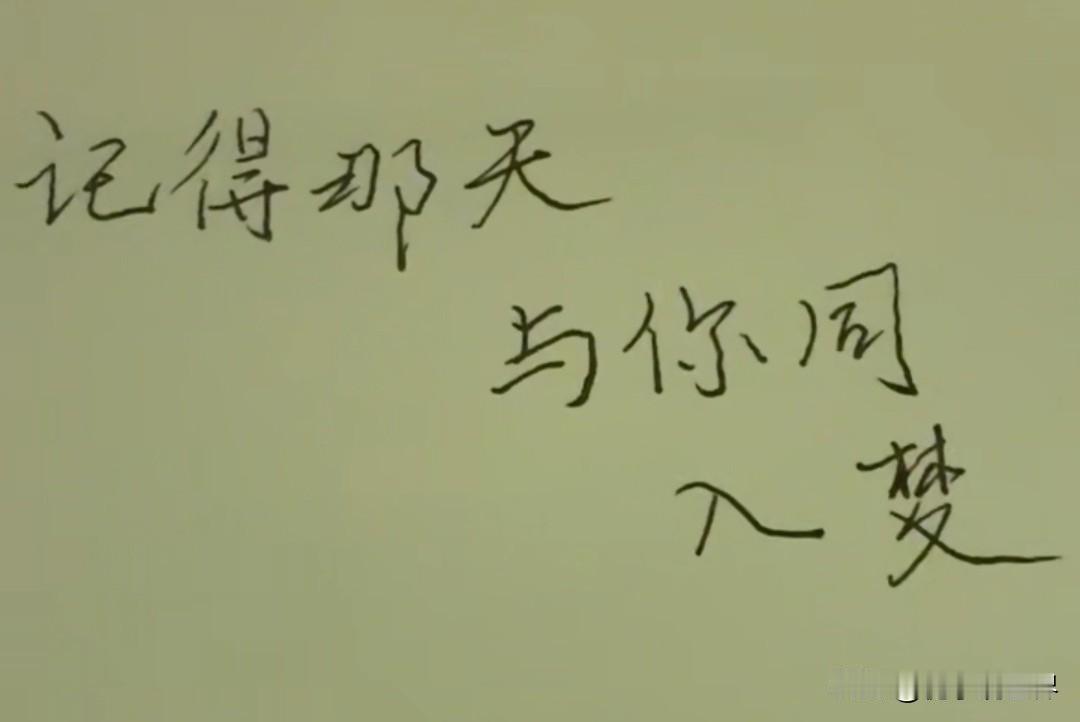 记得那天
与你同
入梦